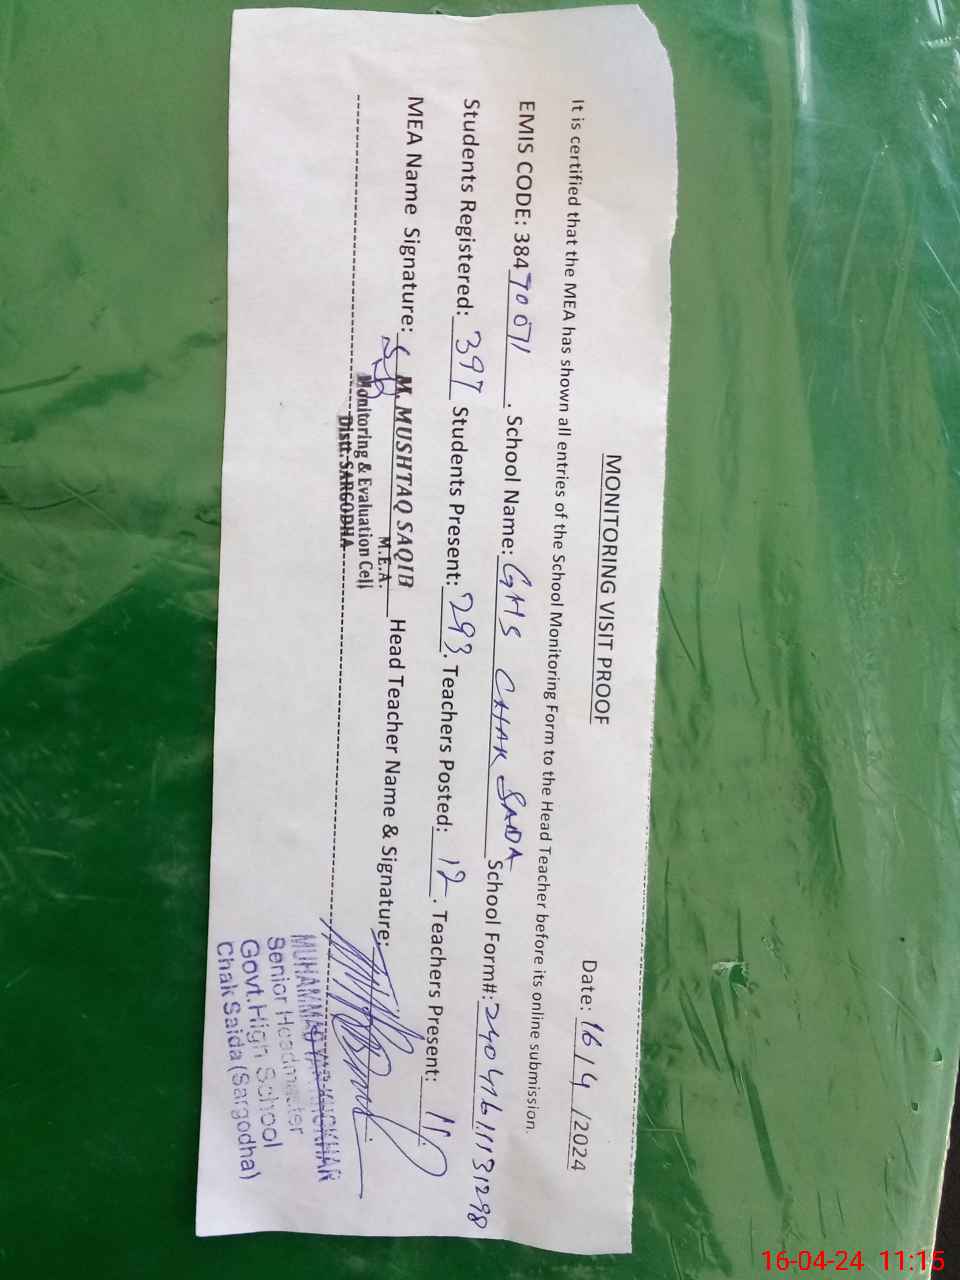 MONITORING VISIT PROOF
Date: 16/4/2024
It is certified that the MEA has shown all entries of the School Monitoring Form to the Head Teacher before its online submission.
EMIS CODE: 38470071. School Name: GHS CHAK SADA School Form#: 24041611131298
Students Registered: 397 Students Present: 293. Teachers Posted: 12. Teachers Present: 11
MEA Name Signature: M. MUSHTAQ SAQIB Head Teacher Name & Signature:
M.E.A.
Monitoring & Evaluation Cell
Distt. SARGODHA
MUHAMMAD YAR KHOKHAR
Senior Headmaster
Govt. High School
Chak Saida (Sargodha)
16-04-24 11:15